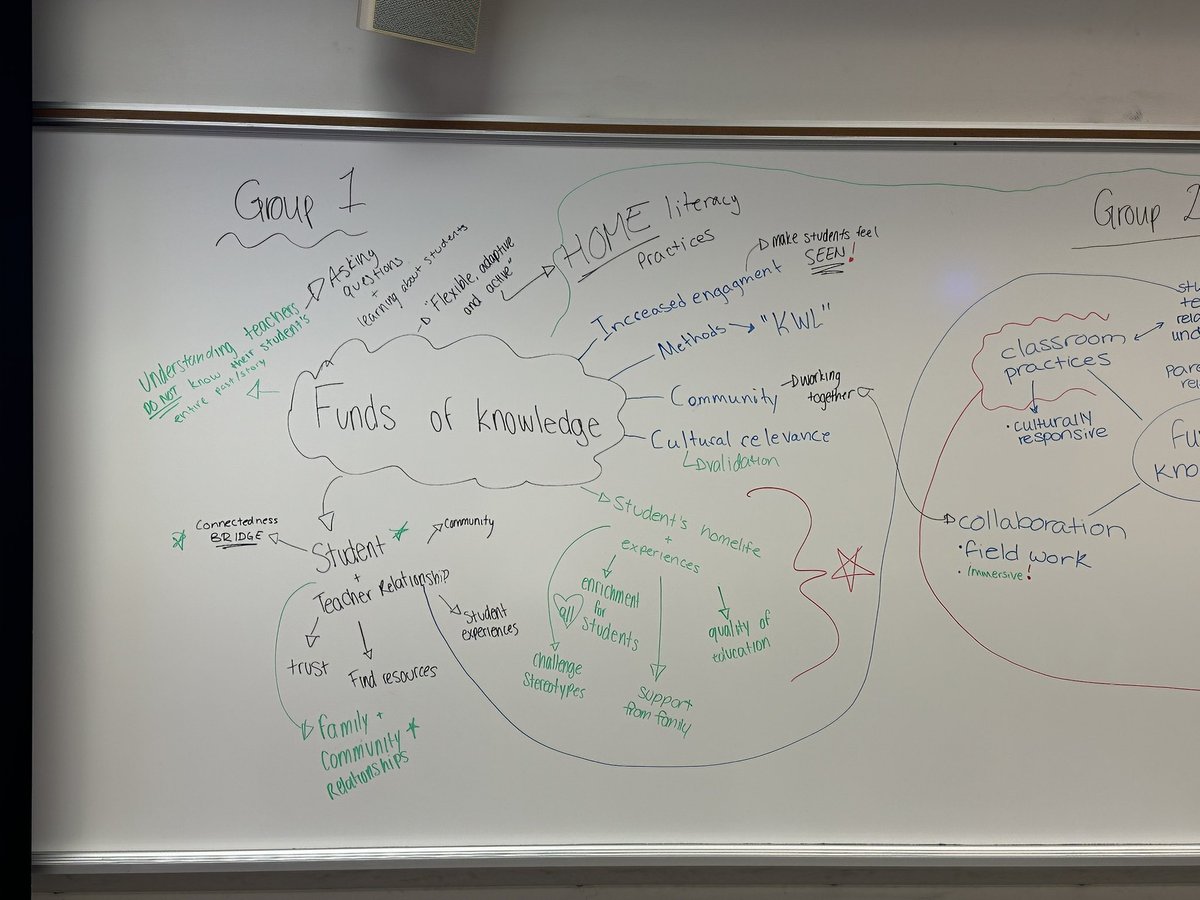 Group 1
Asking
questions
+
learning about students
"Flexible, adaptive
and active"
HOME literacy
Practices
Understanding teachers
DO NOT know their student's
entire past/story
Increased engagment
make students feel
SEEN!
Methods "KWL"
Community
working
together
Cultural relevance
validation
Funds of knowledge
Connectedness
BRIDGE
Student
+
Teacher Relationship
Community
Student
experiences
trust
Find resources
Family +
Community
Relationships
Student's homelife
+
experiences
enrichment
for
all
Students
challenge
Stereotypes
support
from family
quality of
education
Group 2
classroom
practices
• culturally
responsive
collaboration
• field work
• immersive!